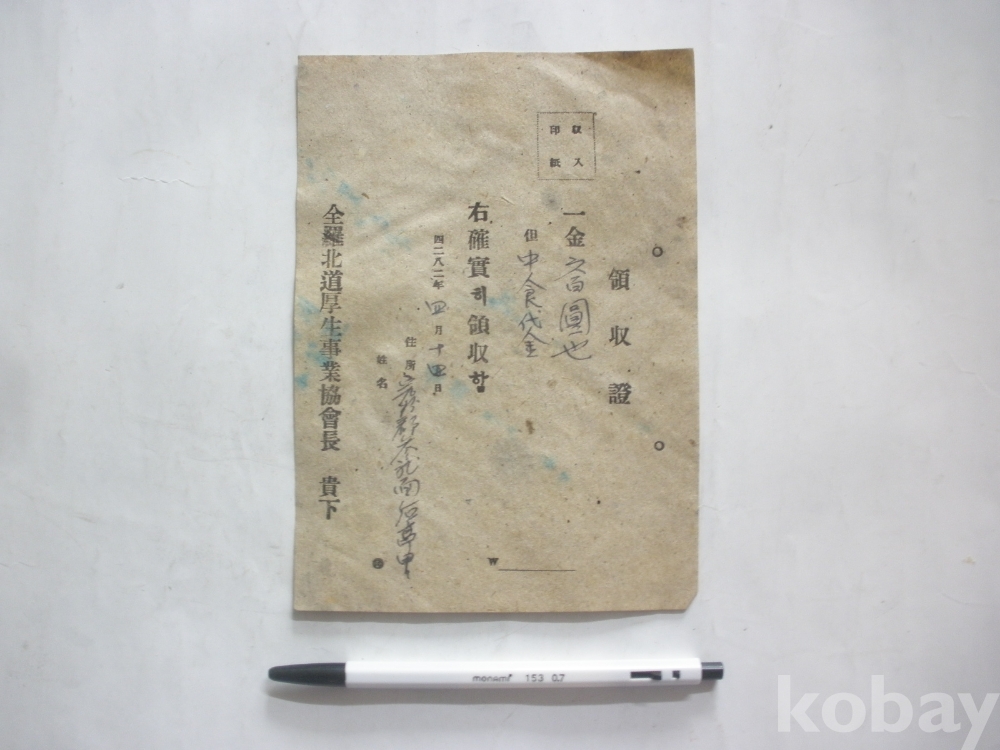 領収證
収入
印紙
一金六百圓也
但 中食代金
右確實히領収함
W
四二八二年 四月 十四日
住所
姓名
全羅北道厚生事業協會長 貴下
monami 153 0.7
kobay